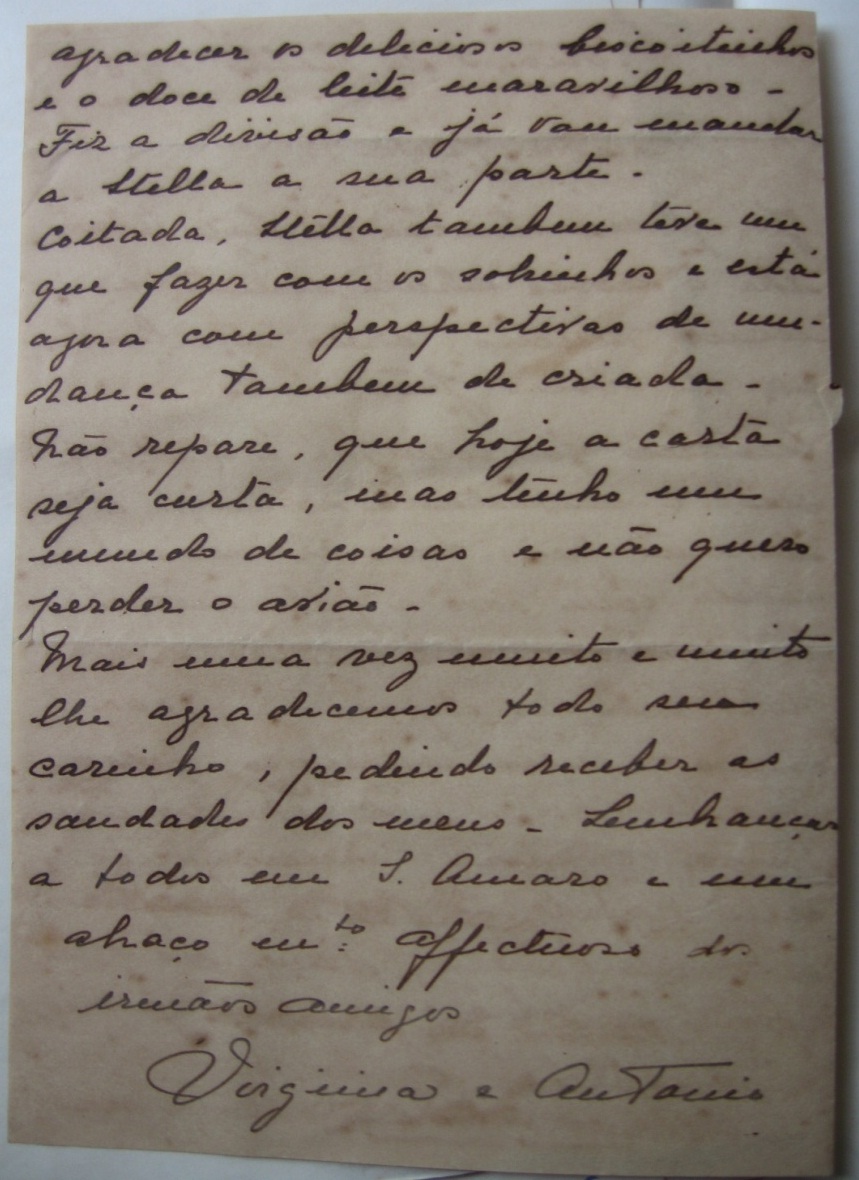 agradecer os deliciosos biscoitinhos
e o doce de leite maravilhoso -
Fiz a divisão e já vou mandar
a Stella a sua parte -
Coitada, Stélla tambem teve um
que fazer com os sobinhos e está
agora com perspectivas de mu-
dança tambem de criada -
Não repare, que hoje a carta
seja curta, mas tenho um
mundo de coisas e não quero
perder o avião -
Mais uma vez muito e muito
lhe agradecemos todo seu
carinho, pedindo receber as
saudades dos meus - Lembranças
a todos em S. Amaro e um
abraço m.to affectuoso dos
irmãos amigos
Virginia e Antonio